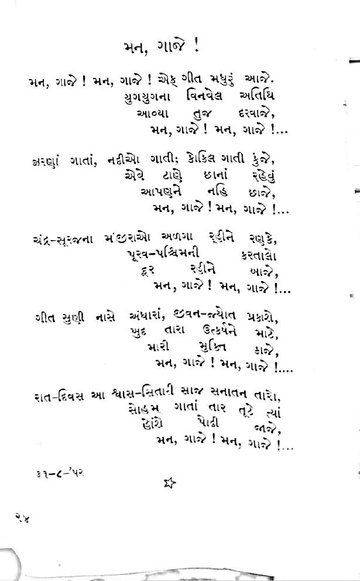 મન, ગાજે !
મન, ગાજે ! મન, ગાજે ! એક ગીત મધુરું આજે.
યુગયુગના વિનવેલ અતિથિ
આવ્યા તુજ દરવાજે,
મન, ગાજે ! મન, ગાજે !...
ઝરણાં ગાતાં, નદીઓ ગાતી; કોકિલ ગાતી કુંજે,
એવે ટાણે છાનાં રહેવું
આપણને નહિ છાજે,
મન, ગાજે ! મન, ગાજે !...
ચંદ્ર-સૂરજના મંજીરાઓ અળગા રહીને રણકે,
પૂરવ-પશ્ચિમની કરતાલો
દૂર રહીને બાજે,
મન, ગાજે ! મન, ગાજે !...
ગીત સુણી નાસે અંધારાં, જીવન-જ્યોત પ્રકાશે,
ખુદ તારા ઉત્કર્ષને માટે,
મારી મુક્તિ કાજે,
મન, ગાજે ! મન, ગાજે !....
રાત-દિવસ આ શ્વાસ-સિતારી સાજ સનાતન તારો,
સોહમ ગાતાં તાર તૂટે ત્યાં
હોંશે પોઢી જાજે,
મન, ગાજે ! મન, ગાજે !...
૩૧-૮-'૫૨
૨૪